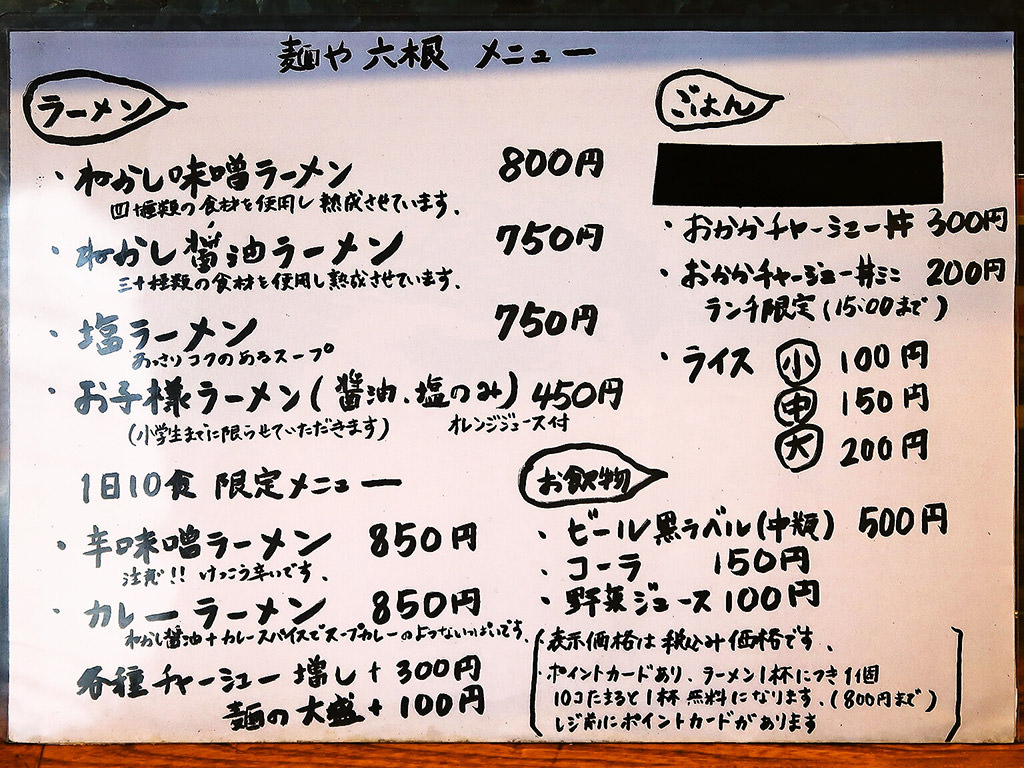 麺や 六根 メニュー
ラーメン
・ねかし味噌ラーメン 800円
四十種類の食材を使用し熟成させています。
・ねかし醤油ラーメン 750円
三十種類の食材を使用し熟成させています。
・塩ラーメン 750円
あっさりコクのあるスープ
・お子様ラーメン(醤油、塩のみ) 450円
(小学生までに限らせていただきます) オレンジジュース付
1日10食 限定メニュー
・辛味噌ラーメン 850円
注意!! けっこう辛いです、
・カレーラーメン 850円
ねかし醤油+カレースパイスでスープカレーのような
各種チャーシュー増し+300円
麺の大盛+100円
ごはん
・おかかチャーシュー丼 300円
・おかかチャーシュー丼ミニ 200円
ランチ限定(15:00まで)
・ライス 小 100円
中 150円
大 200円
お飲物
・ビール黒ラベル(中瓶) 500円
・コーラ 150円
・野菜ジュース 100円
・表示価格は税込み価格です、
・ポイントカードあり、ラーメン1杯につき1個
10コたまると1杯無料になります、(800円まで)
レジ前にポイントカードがあります